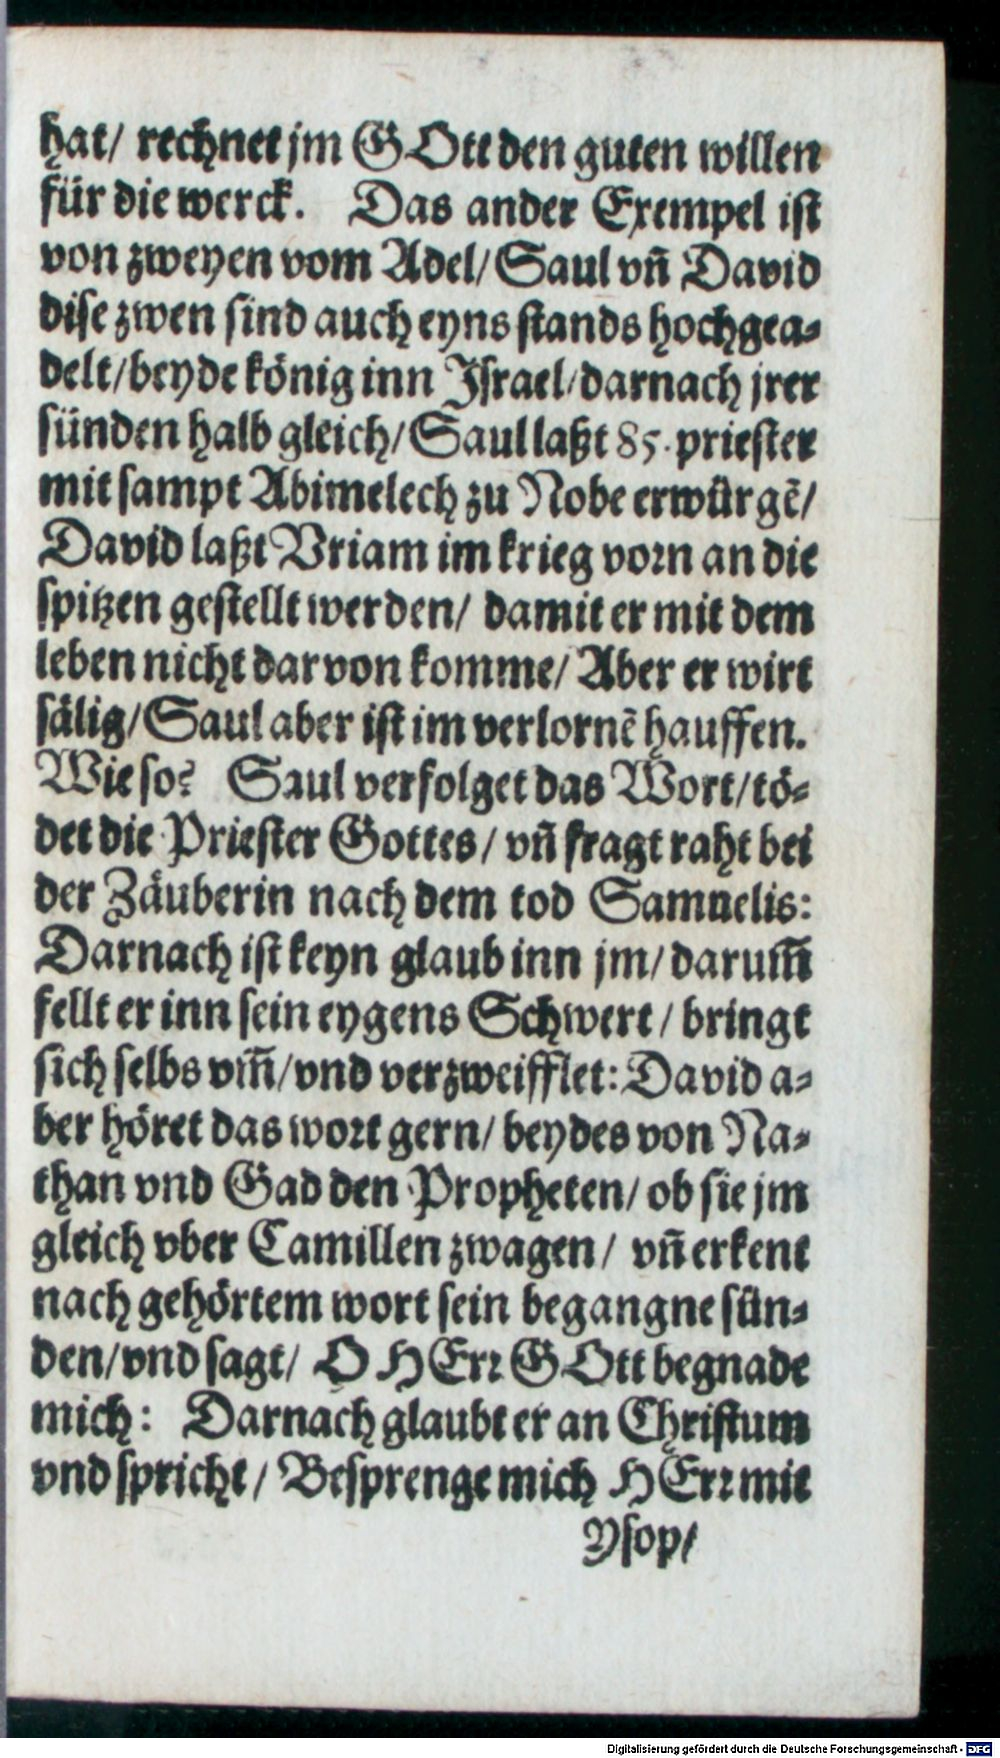 hat/ rechnet jm GOtt den guten willen
für die werck. Das ander Exempel ist
von zweyen vom Adel/ Saul vñ David
dise zwen sind auch eyns stands hochgea-
delt/ beyde könig inn Israel/ darnach jrer
sünden halb gleich/ Saul laßt 85. priester
mit sampt Abimelech zu Nobe erwürgẽ/
David laßt Vriam im krieg vorn an die
spitzen gestellt werden/ damit er mit dem
leben nicht darvon komme/ Aber er wirt
sälig/ Saul aber ist im verlornẽ hauffen.
Wie so? Saul verfolget das Wort/ tö-
det die Priester Gottes/ vñ fragt raht bei
der Zäuberin nach dem tod Samuelis:
Darnach ist keyn glaub inn jm/ darum̃
fellt er inn sein eygens Schwert/ bringt
sich selbs vm̃/ vnd verzweifflet: David a-
ber höret das wort gern/ beydes von Na-
than vnd Gad den Propheten/ ob sie jm
gleich vber Camillen zwagen/ vñ erkent
nach gehörtem wort sein begangne sün-
den/ vnd sagt/ O HErr GOtt begnade
mich: Darnach glaubt er an Christum
vnd spricht/ Besprenge mich HErr mit
Ysop/
Digitalisierung gefördert durch die Deutsche Forschungsgemeinschaft - DFG